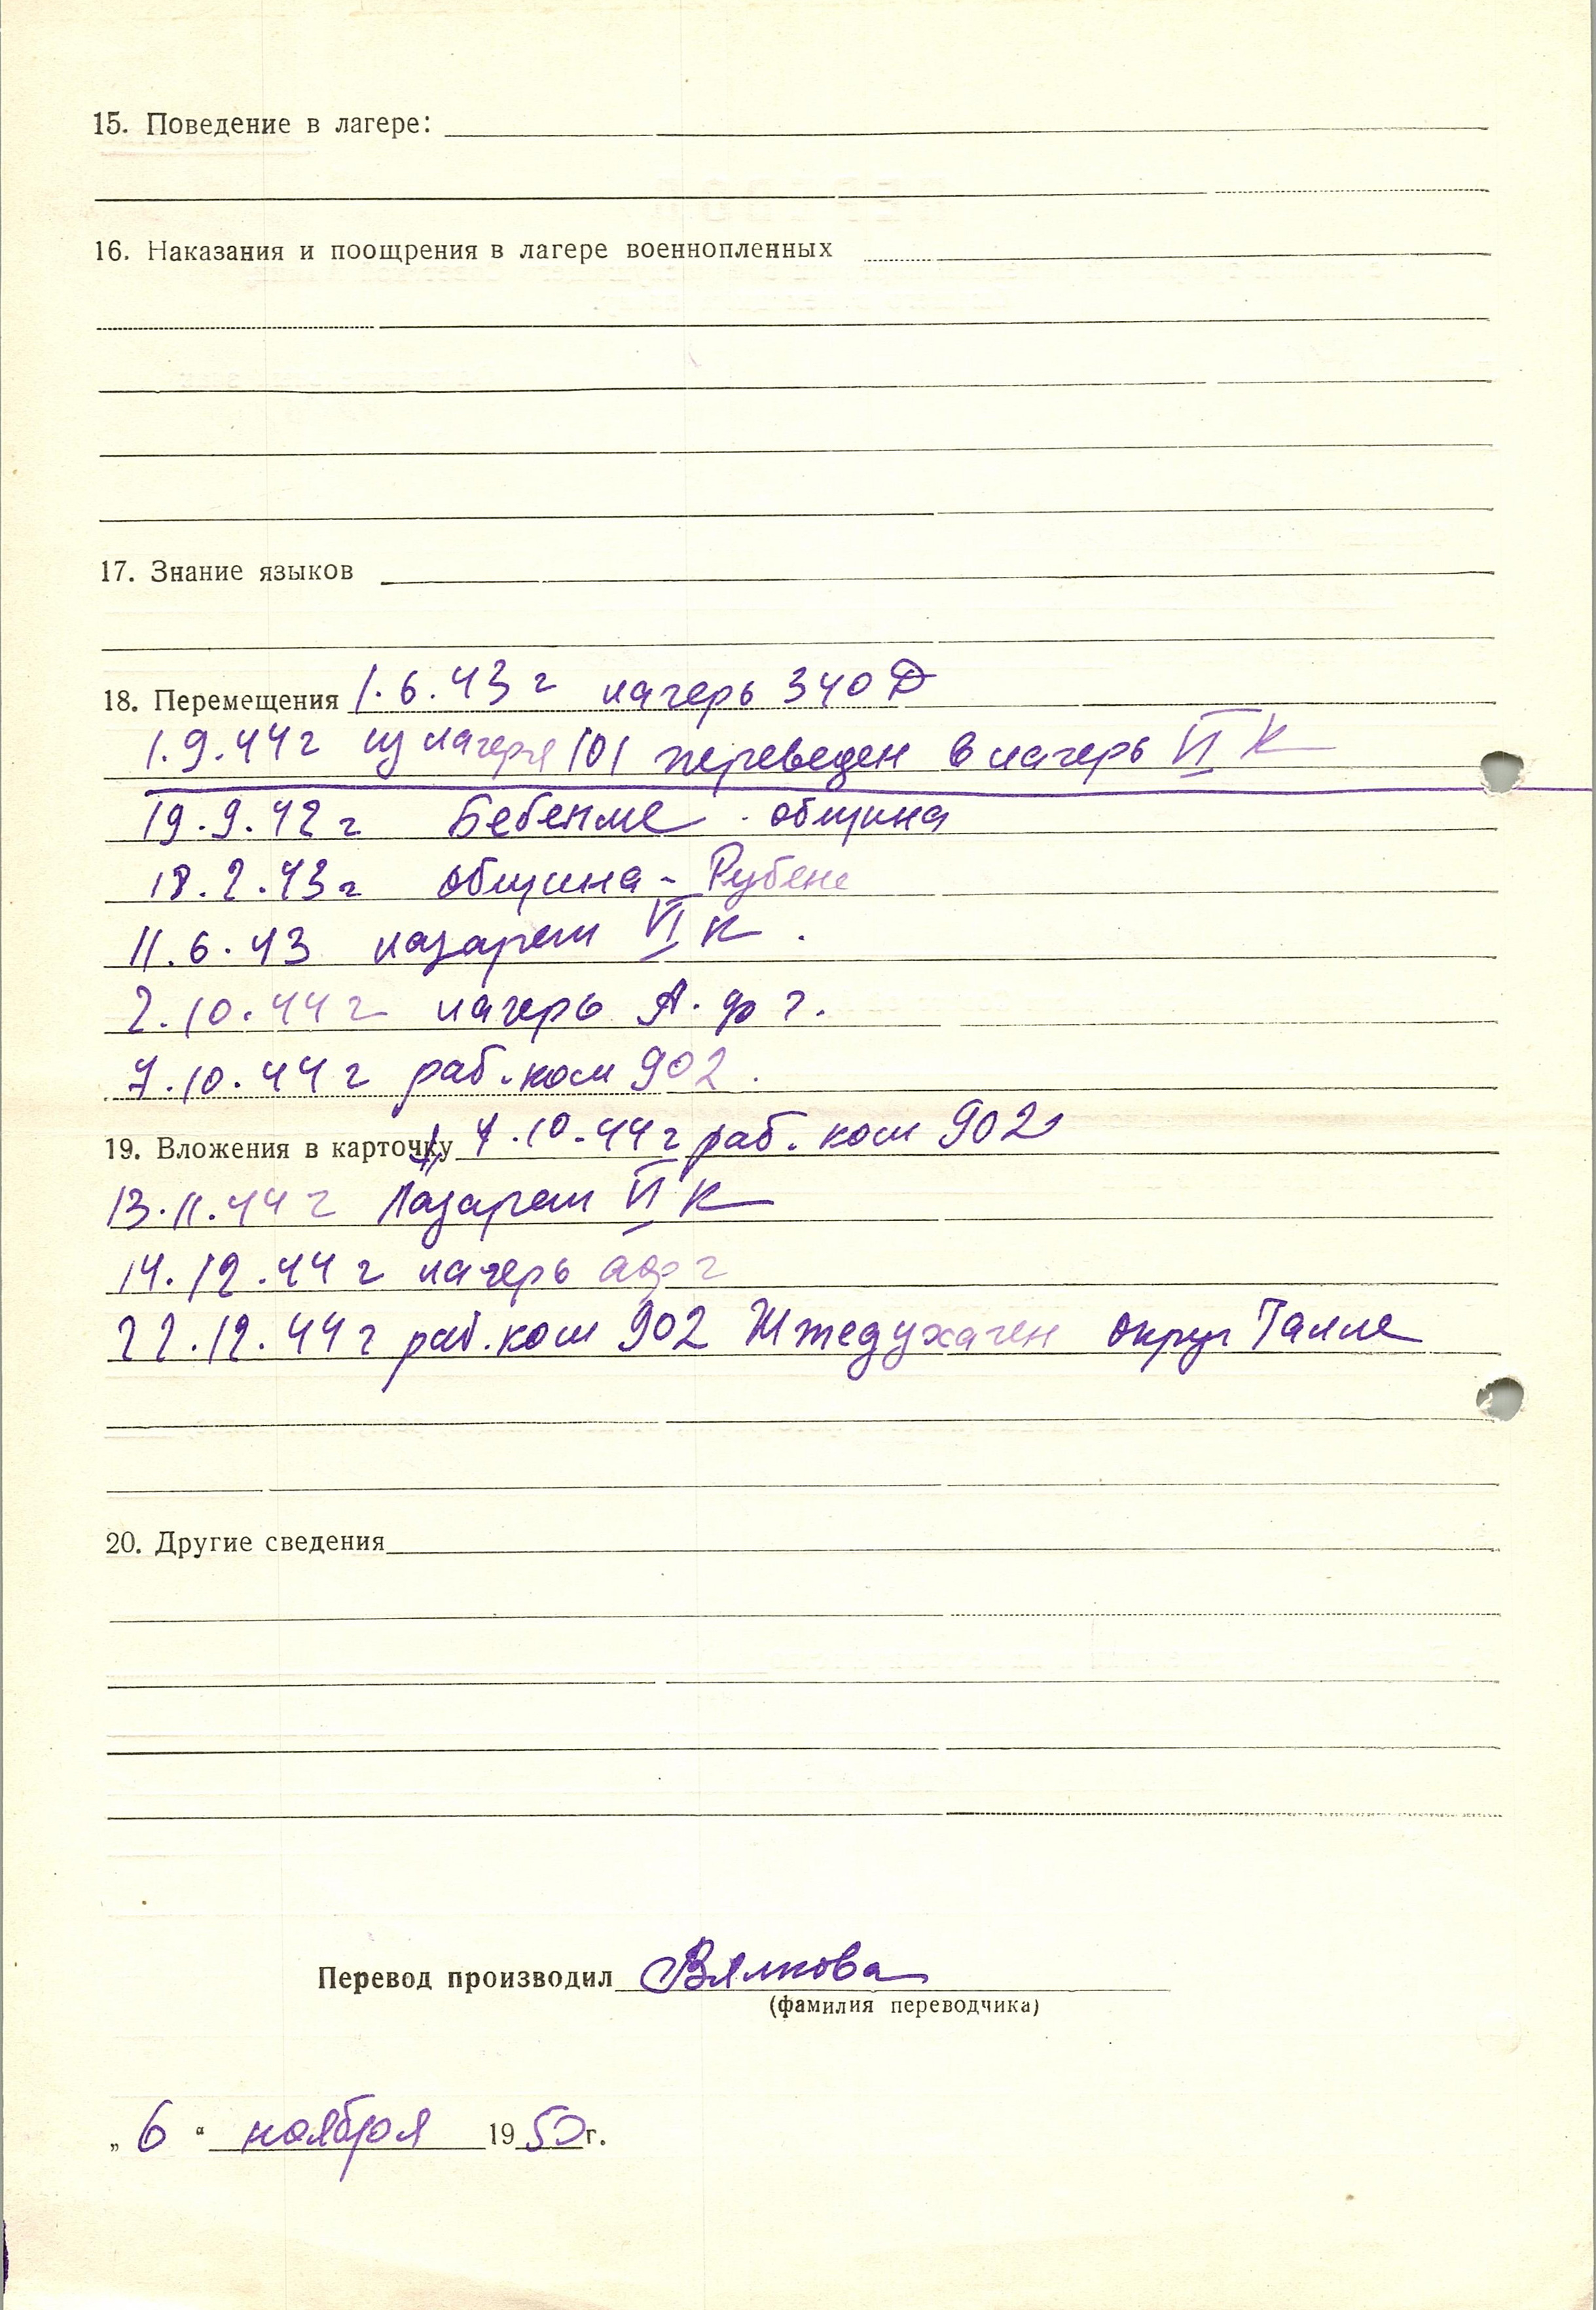 15. Поведение в лагере:
16. Наказания и поощрения в лагере военнопленных
17. Знание языков
18. Перемещения 1.6.43 г лагерь 340 Д
1.9.44 г из лагеря 101 переведен в лагерь VI К
19.9.42 г Бебенме община
18.2.43 г община - Рубене
11.6.43 лазарет VI К.
2.10.44 г лагерь А. ф г.
7.10.44 г раб. ком 902.
19. Вложения в карточку 7.10.44 г раб. ком 902
13.11.44 г Лазарет VI К
14.12.44 г лагерь афг
22.12.44 г раб. ком 902 Штедухаген округ Галле
20. Другие сведения
Перевод производил Вялкова
(фамилия переводчика)
„ 6 “ ноября 1950 г.